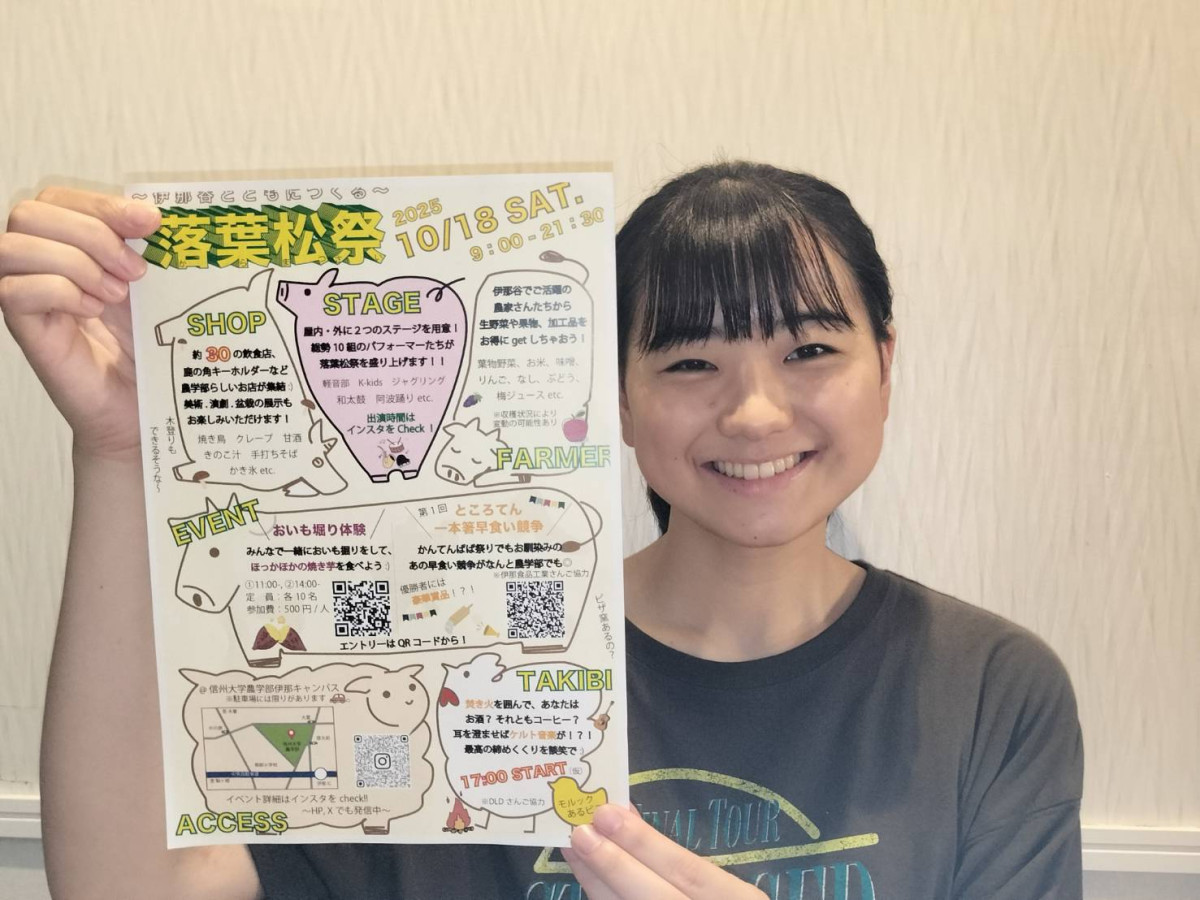 ～伊那谷とともにつくる～
落葉松祭
2025
10/18 SAT.
9:00-21:30
SHOP
約30の飲食店、
鹿の角キーホルダーなど
農学部らしいお店が集結:)
美術.演劇.盆栽の展示も
お楽しみいただけます！
焼き鳥 クレープ 甘酒
きのこ汁 手打ちそば
かき氷 etc.
木登りも
できるそうな～
STAGE
屋内・外に2つのステージを用意！
総勢10組のパフォーマーたちが
落葉松祭を盛り上げます！！
軽音部 K-kids ジャグリング
和太鼓 阿波踊り etc.
出演時間は
インスタをCheck！
伊那谷でご活躍の
農家さんたちから
生野菜や果物、加工品を
お得にgetしちゃおう！
葉物野菜、お米、味噌、
りんご、なし、ぶどう、
梅ジュース etc.
※収穫状況により
変動の可能性あり
FARMER
EVENT
おいも堀り体験
みんなで一緒においも掘りをして、
ほっかほかの焼き芋を食べよう:)
①11:00-, ②14:00-
定 員：各10名
参加費：500円/人
第1回 ところてん
一本箸早食い競争
かんてんぱぱ祭りでもお馴染みの
あの早食い競争がなんと農学部でも◎
※伊那食品工業さんご協力
優勝者には
豪華賞品！？！
エントリーはQRコードから！
ピザ窯あるの？
@信州大学農学部伊那キャンパス
※駐車場には限りがあります
イベント詳細はインスタをcheck!!
～HP, Xでも発信中～
ACCESS
TAKIBI
焚き火を囲んで、あなたは
お酒？それともコーヒー？
耳を澄ませばケルト音楽が！？！
最高の締めくくりを談笑で:)
17:00 START
※DLDさんご協力
モルック
あるピ
TOUR